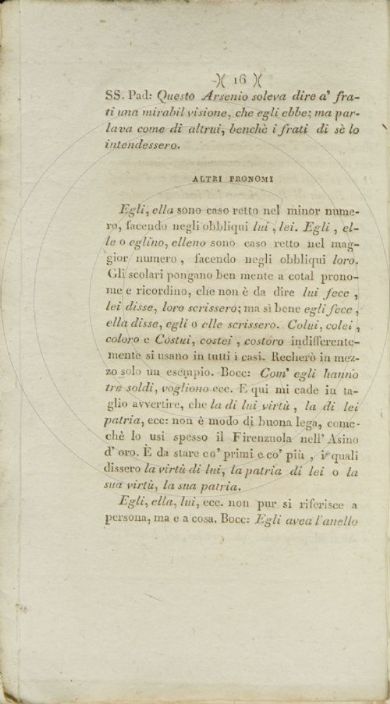 )( 16 )(
SS. Pad: Questo Arsenio soleva dire a' fra-
ti una mirabil visione, che egli ebbe; ma par-
lava come di altrui, benchè i frati di sè lo
intendessero.
ALTRI PRONOMI
Egli, ella sono caso retto nel minor nume-
ro, facendo negli obbliqui lui, lei. Egli, el-
le o eglino, elleno sono caso retto nel mag-
gior numero, facendo negli obbliqui loro.
Gli scolari pongano ben mente a cotal prono-
me e ricordino, che non è da dire lui fece,
lei disse, loro scrissero; ma sì bene egli fece,
ella disse, egli o elle scrissero. Colui, colei,
coloro e Costui, costei, costoro indifferente-
mente si usano in tutti i casi. Recherò in mez-
zo solo un esempio. Bocc: Com' egli hanno
tre soldi, vogliono ecc. E qui mi cade in ta-
glio avvertire, che la di lui virtù, la di lei
patria, ecc: non è modo di buona lega, come-
chè lo usi spesso il Firenzuola nell' Asino
d' oro. È da stare co' primi e co' più, i quali
dissero la virtù di lui, la patria di lei o la
sua virtù, la sua patria.
Egli, ella, lui, ecc. non pur si riferisce a
persona, ma e a cosa. Bocc: Egli avea l'anello